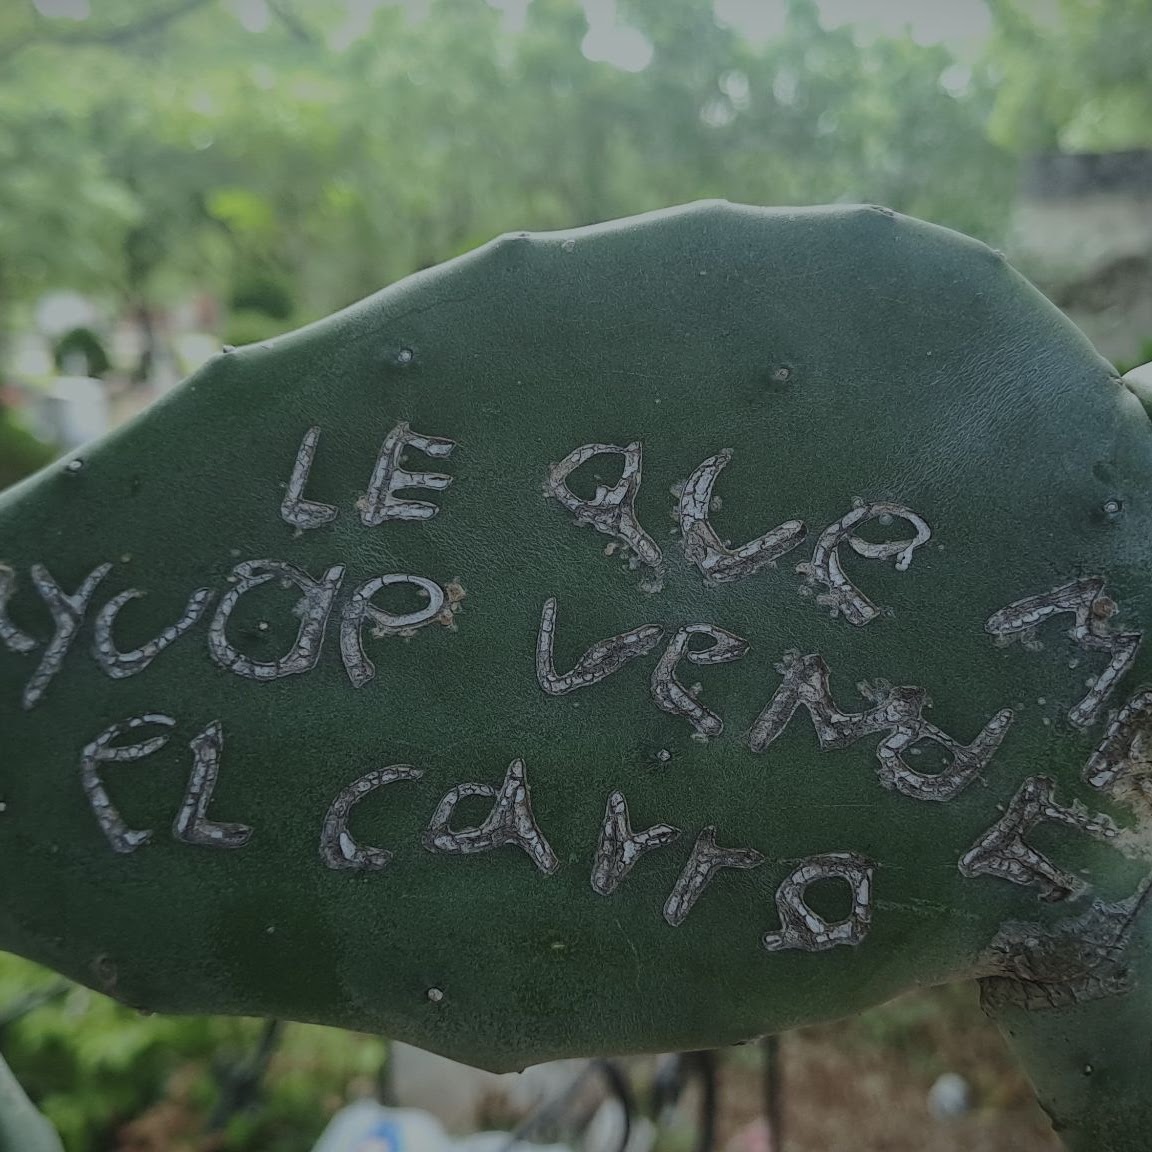 LE QUE M
YUAR VENdE
EL carro